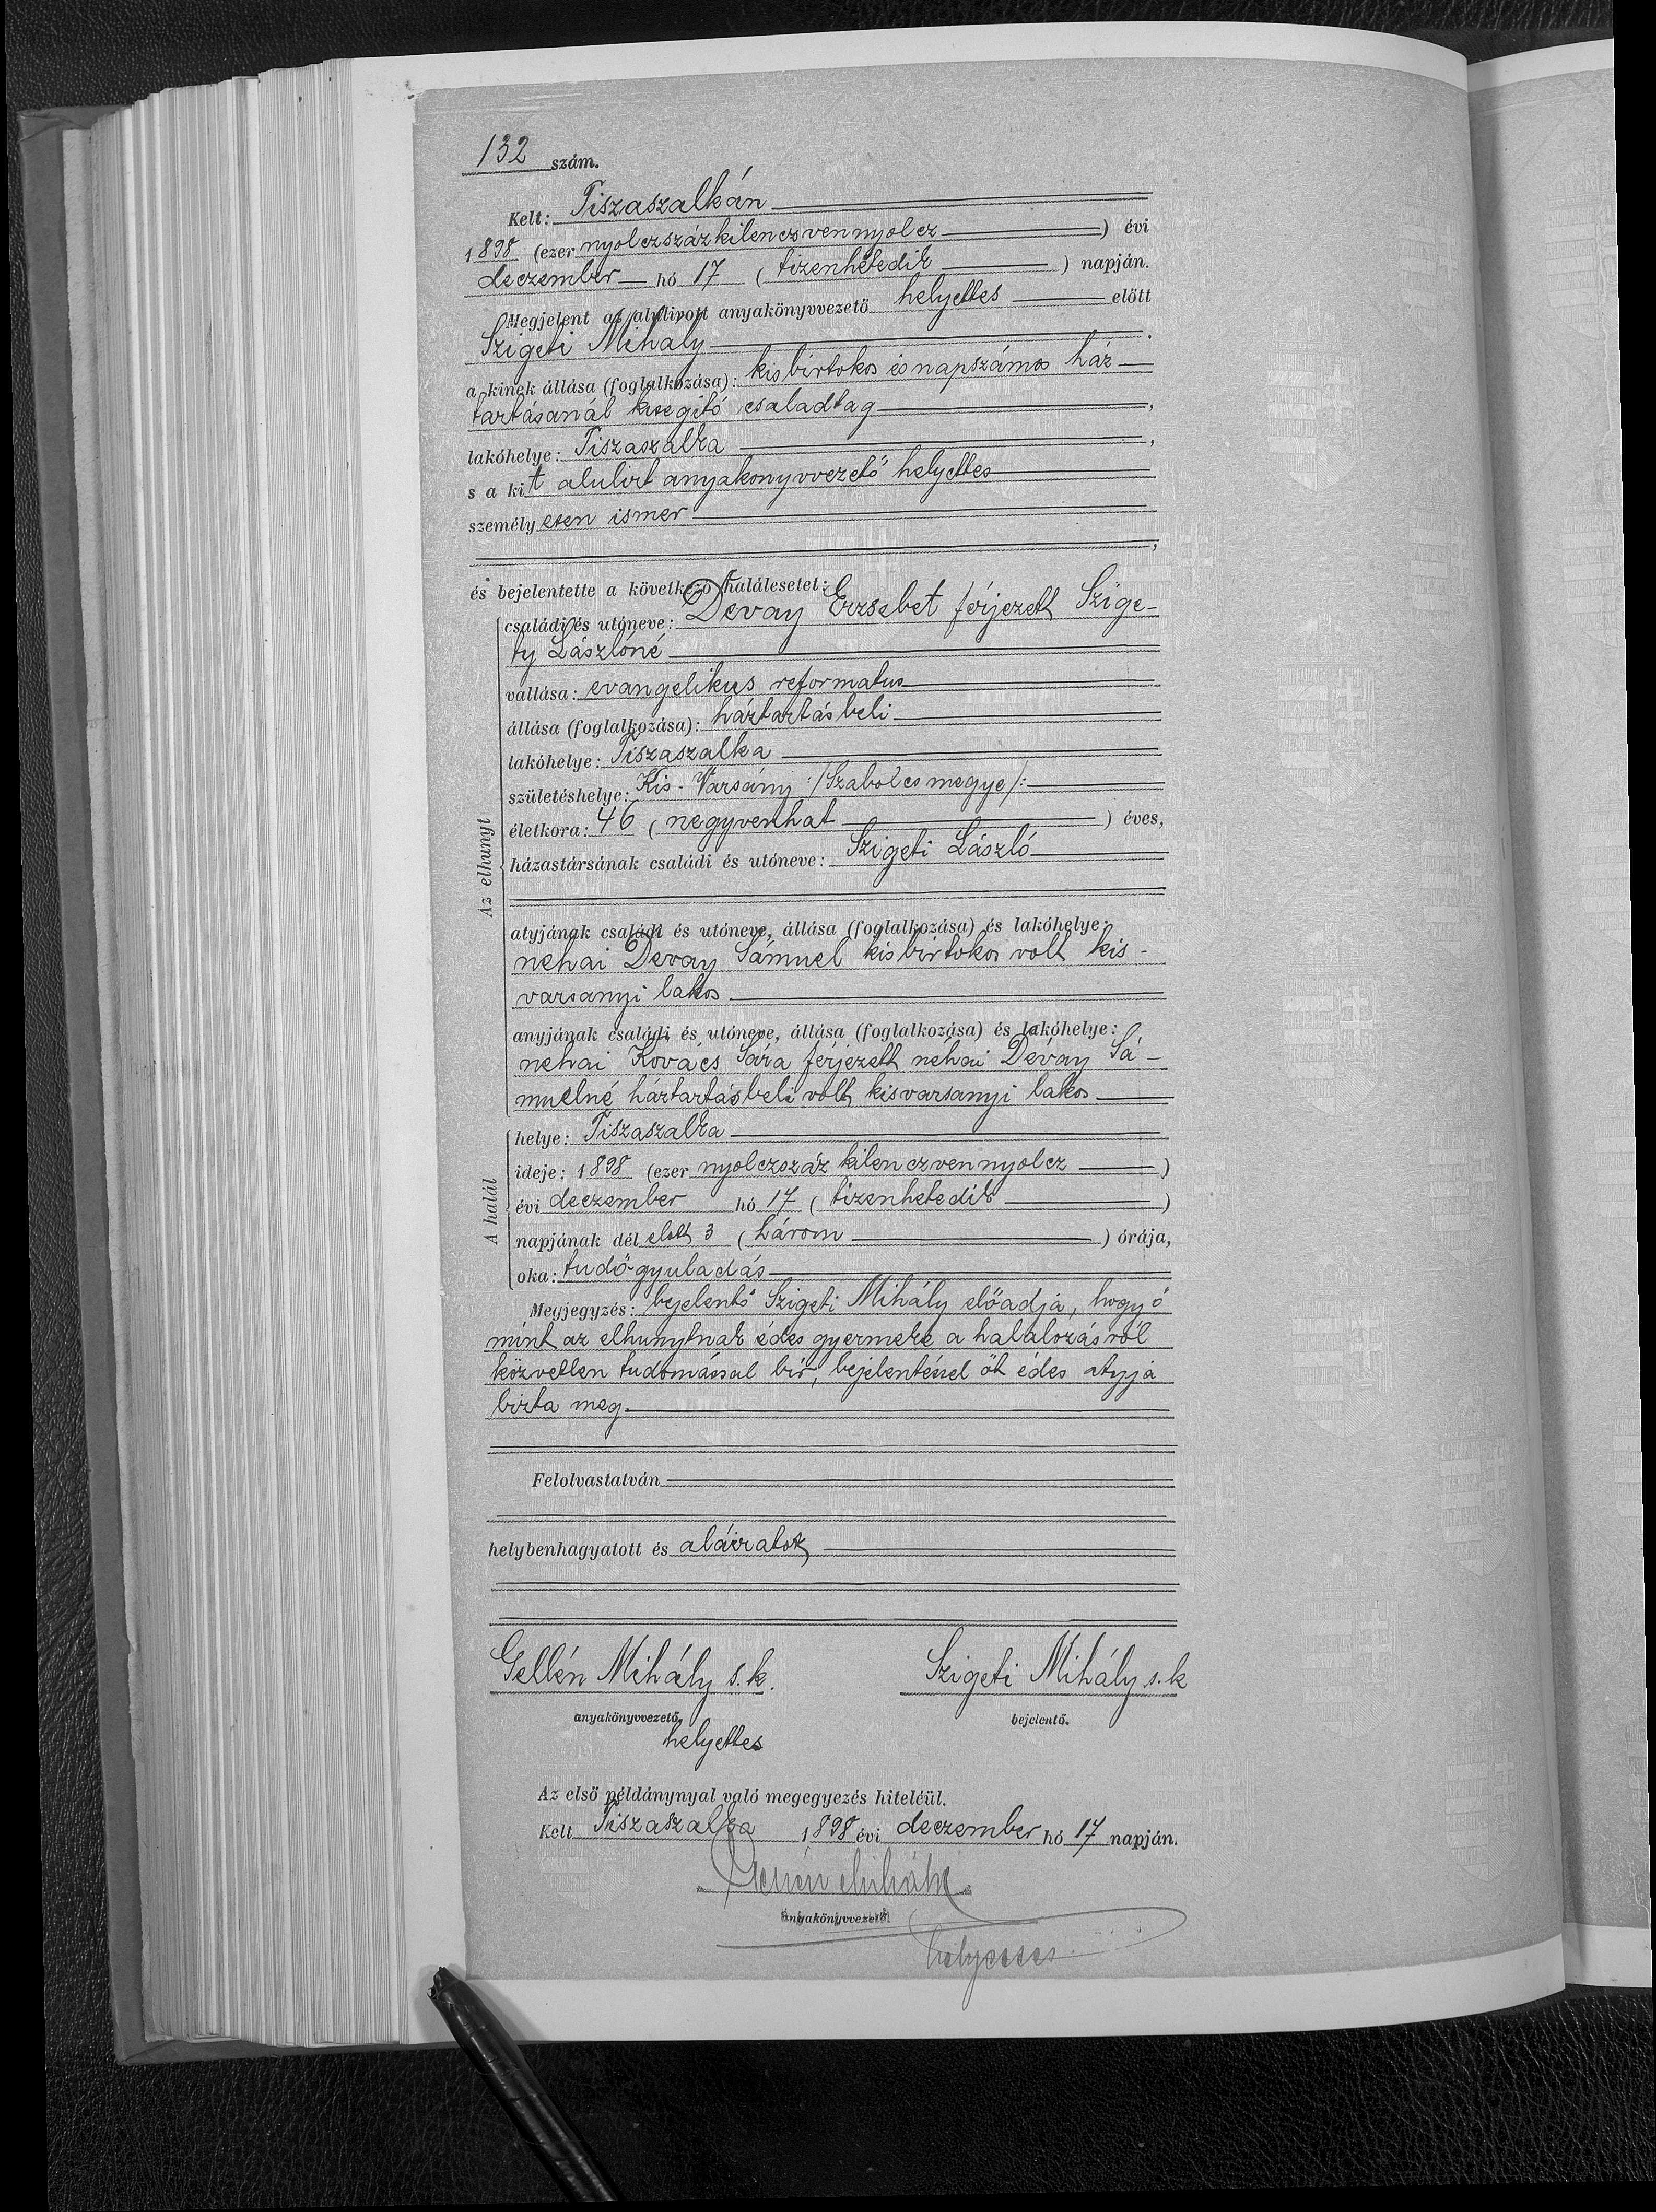 132 szám.
Kelt: Tiszaszalkán
1898 (ezer nyolczszázkilenczvennyolcz) évi
deczember hó 17 (tizenhetedik) napján.
Megjelent az alulirott anyakönyvvezető helyettes előtt
Szigeti Mihály
a kinek állása (foglalkozása): kisbirtokos és napszámos ház
tartásanál kisegitő családtag,
lakóhelye: Tiszaszalka,
s a kit alulirt anyakönyvvezető helyettes
személyesen ismer
,
és bejelentette a következő halálesetet:
Az elhunyt
családi és utóneve: Devay Erzsebet férjezett Szige-
ty Lászlóné
vallása: evangelikus reformatus
állása (foglalkozása): háztartásbeli
lakóhelye: Tiszaszalka
születéshelye: Kis-Varsány :/Szabolcsmegye/:
életkora: 46 (negyvenhat) éves,
házastársának családi és utóneve: Szigeti László
atyjának családi és utóneve, állása (foglalkozása) és lakóhelye:
nehai Devay Sámuel kisbirtokos volt kis-
varsanyi lakos
anyjának családi és utóneve, állása (foglalkozása) és lakóhelye:
nehai Kovács Sára férjezett néhai Dévay Sá-
muelné háztartásbeli volt kisvarsanyi lakos
A halál
helye: Tiszaszalka
ideje: 1898 (ezer nyolczszáz kilenczvennyolcz)
évi deczember hó 17 (tizenhetedik)
napjának dél elott 3 (három) órája,
oka: tudő-gyuladás
Megjegyzés: bejelentő Szigeti Mihály előadja, hogy ő
mint az elhunytnak édes gyermeke a halalozásról
közvetlen tudomással bir, bejelentéssel őt édes atyja
bizta meg.
Felolvastatván
helybenhagyatott és aláiratok
Gellén Mihály s.k. Szigeti Mihály s.k
anyakönyvvezető, bejelentő.
helyettes
Az első példánynyal való megegyezés hiteléül.
Kelt Tiszaszalka 1898 évi deczember hó 17 napján.
Gellén Mihály
anyakönyvvezető
helyettes